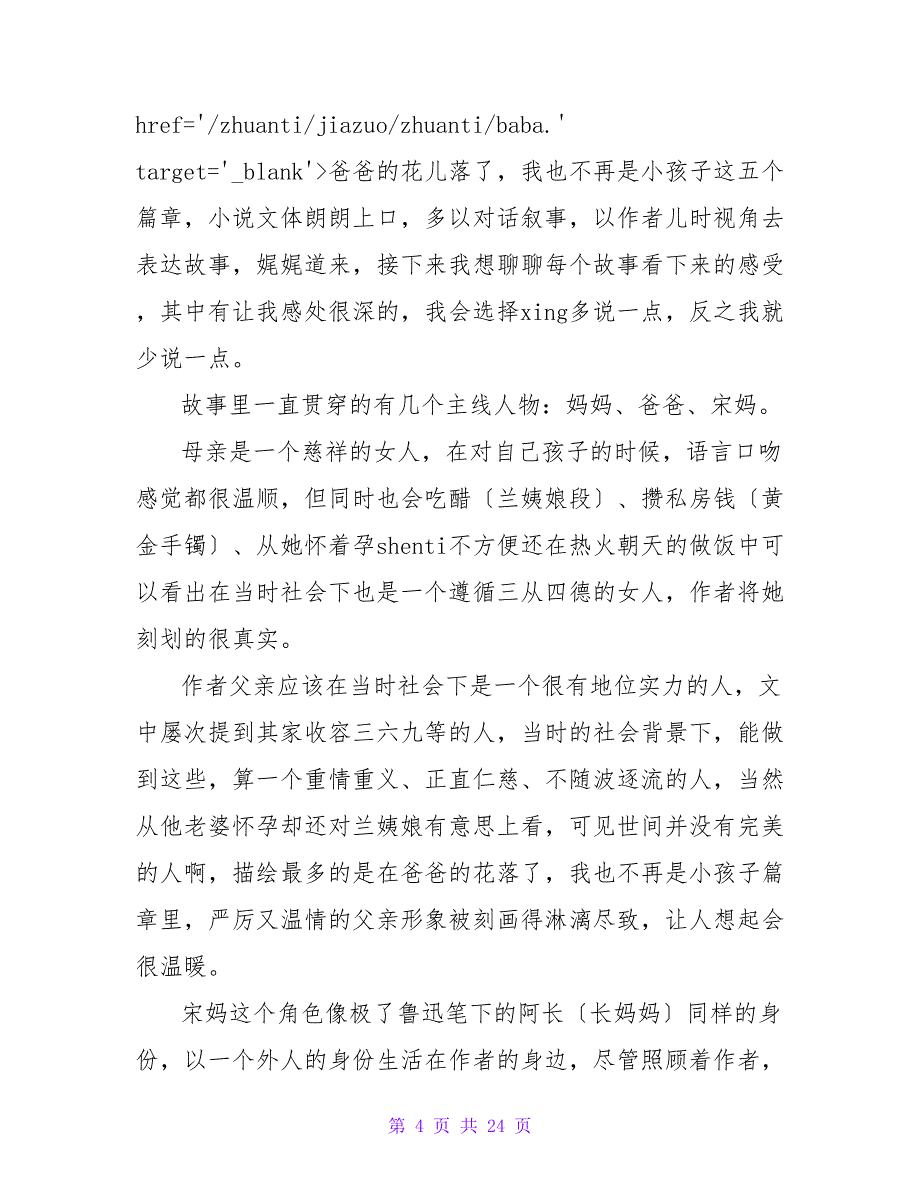 href='/zhuanti/jiazuo/zhuanti/baba.'
target='_blank'>爸爸的花儿落了，我也不再是小孩子这五个
篇章，小说文体朗朗上口，多以对话叙事，以作者儿时视角去
表达故事，娓娓道来，接下来我想聊聊每个故事看下来的感受
，其中有让我感处很深的，我会选择xing多说一点，反之我就
少说一点。
故事里一直贯穿的有几个主线人物：妈妈、爸爸、宋妈。
母亲是一个慈祥的女人，在对自己孩子的时候，语言口吻
感觉都很温顺，但同时也会吃醋〔兰姨娘段〕、攒私房钱〔黄
金手镯〕、从她怀着孕shenti不方便还在热火朝天的做饭中可
以看出在当时社会下也是一个遵循三从四德的女人，作者将她
刻划的很真实。
作者父亲应该在当时社会下是一个很有地位实力的人，文
中屡次提到其家收容三六九等的人，当时的社会背景下，能做
到这些，算一个重情重义、正直仁慈、不随波逐流的人，当然
从他老婆怀孕却还对兰姨娘有意思上看，可见世间并没有完美
的人啊，描绘最多的是在爸爸的花落了，我也不再是小孩子篇
章里，严厉又温情的父亲形象被刻画得淋漓尽致，让人想起会
很温暖。
宋妈这个角色像极了鲁迅笔下的阿长〔长妈妈〕同样的身
份，以一个外人的身份生活在作者的身边，尽管照顾着作者，
第 4 页 共 24 页